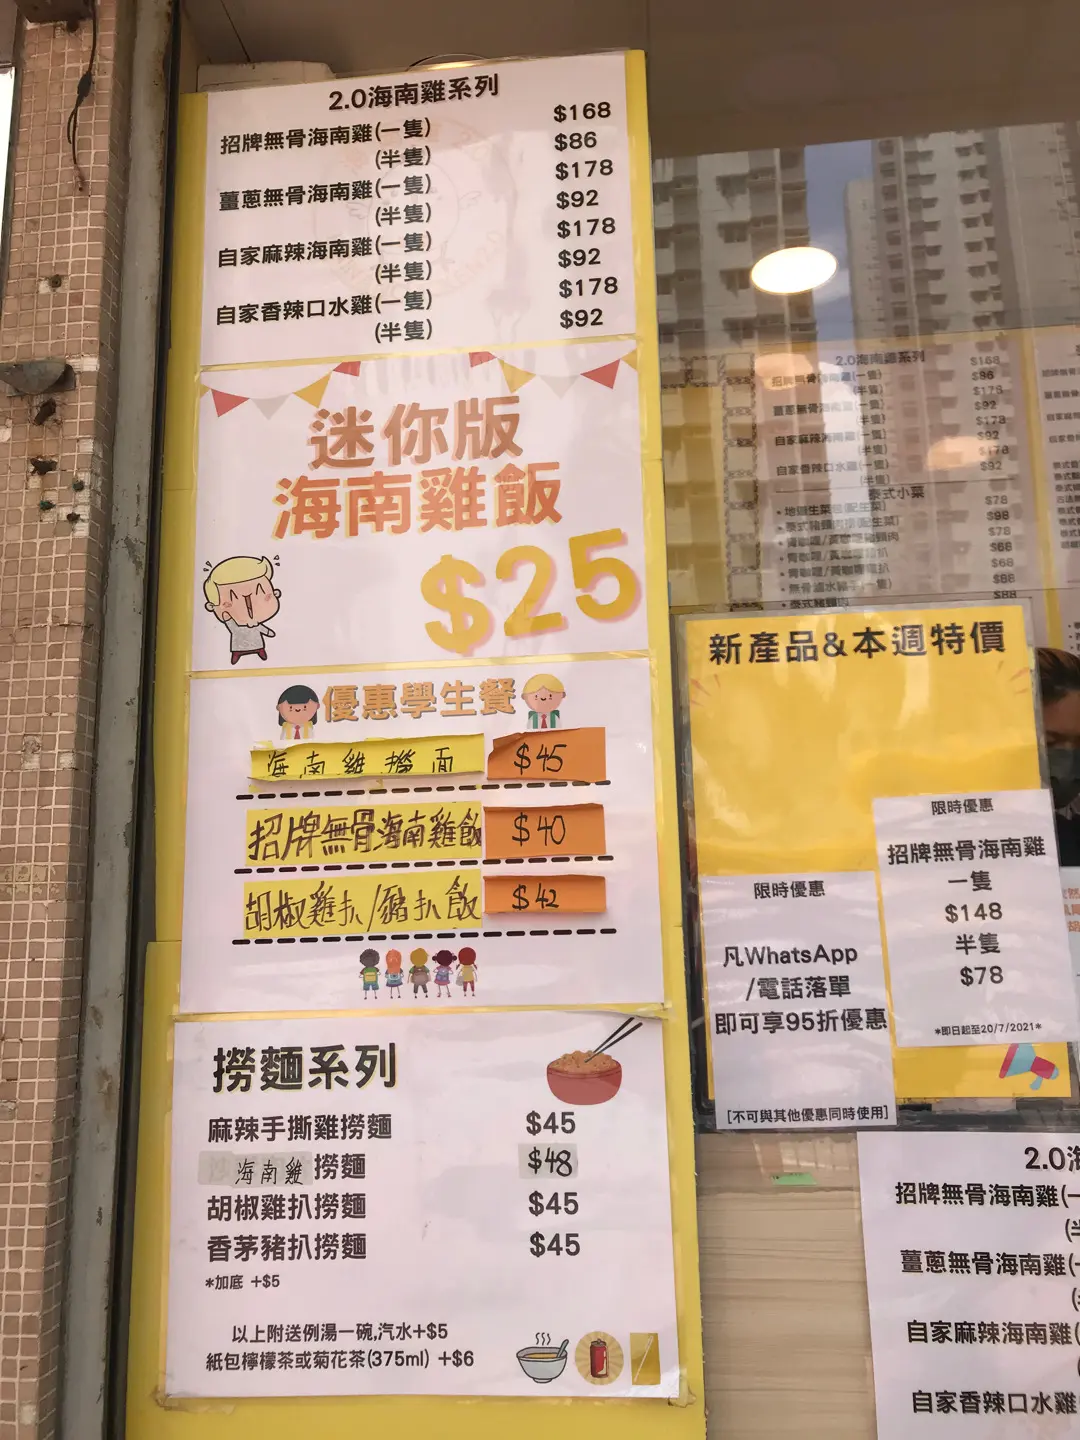 2.0海南雞系列
招牌無骨海南雞(一隻) $168
(半隻) $86
薑蔥無骨海南雞(一隻) $178
(半隻) $92
自家麻辣海南雞(一隻) $178
(半隻) $92
自家香辣口水雞(一隻) $178
(半隻) $92
迷你版
海南雞飯
$25
優惠學生餐
海南雞撈面 $45
招牌無骨海南雞飯 $40
胡椒雞扒/豬扒飯 $42
撈麵系列
麻辣手撕雞撈麵 $45
海南雞撈麵 $48
胡椒雞扒撈麵 $45
香茅豬扒撈麵 $45
*加底 +$5
以上附送例湯一碗,汽水+$5
紙包檸檬茶或菊花茶(375ml) +$6
2.0海南雞系列
招牌無骨海南雞(一隻) $168
(半隻) $86
薑蔥無骨海南雞(一隻) $178
(半隻) $92
自家麻辣海南雞(一隻) $178
(半隻) $92
自家香辣口水雞(一隻) $178
(半隻) $92
泰式小菜
$78
$98
$78
$68
$68
$88
$88
新產品&本週特價
限時優惠
招牌無骨海南雞
一隻
$148
半隻
$78
*即日起至20/7/2021*
限時優惠
凡WhatsApp
/電話落單
即可享95折優惠
[不可與其他優惠同時使用]
2.0海
招牌無骨海南雞(一
(半
薑蔥無骨海南雞(一
自家麻辣海南雞(
自家香辣口水雞